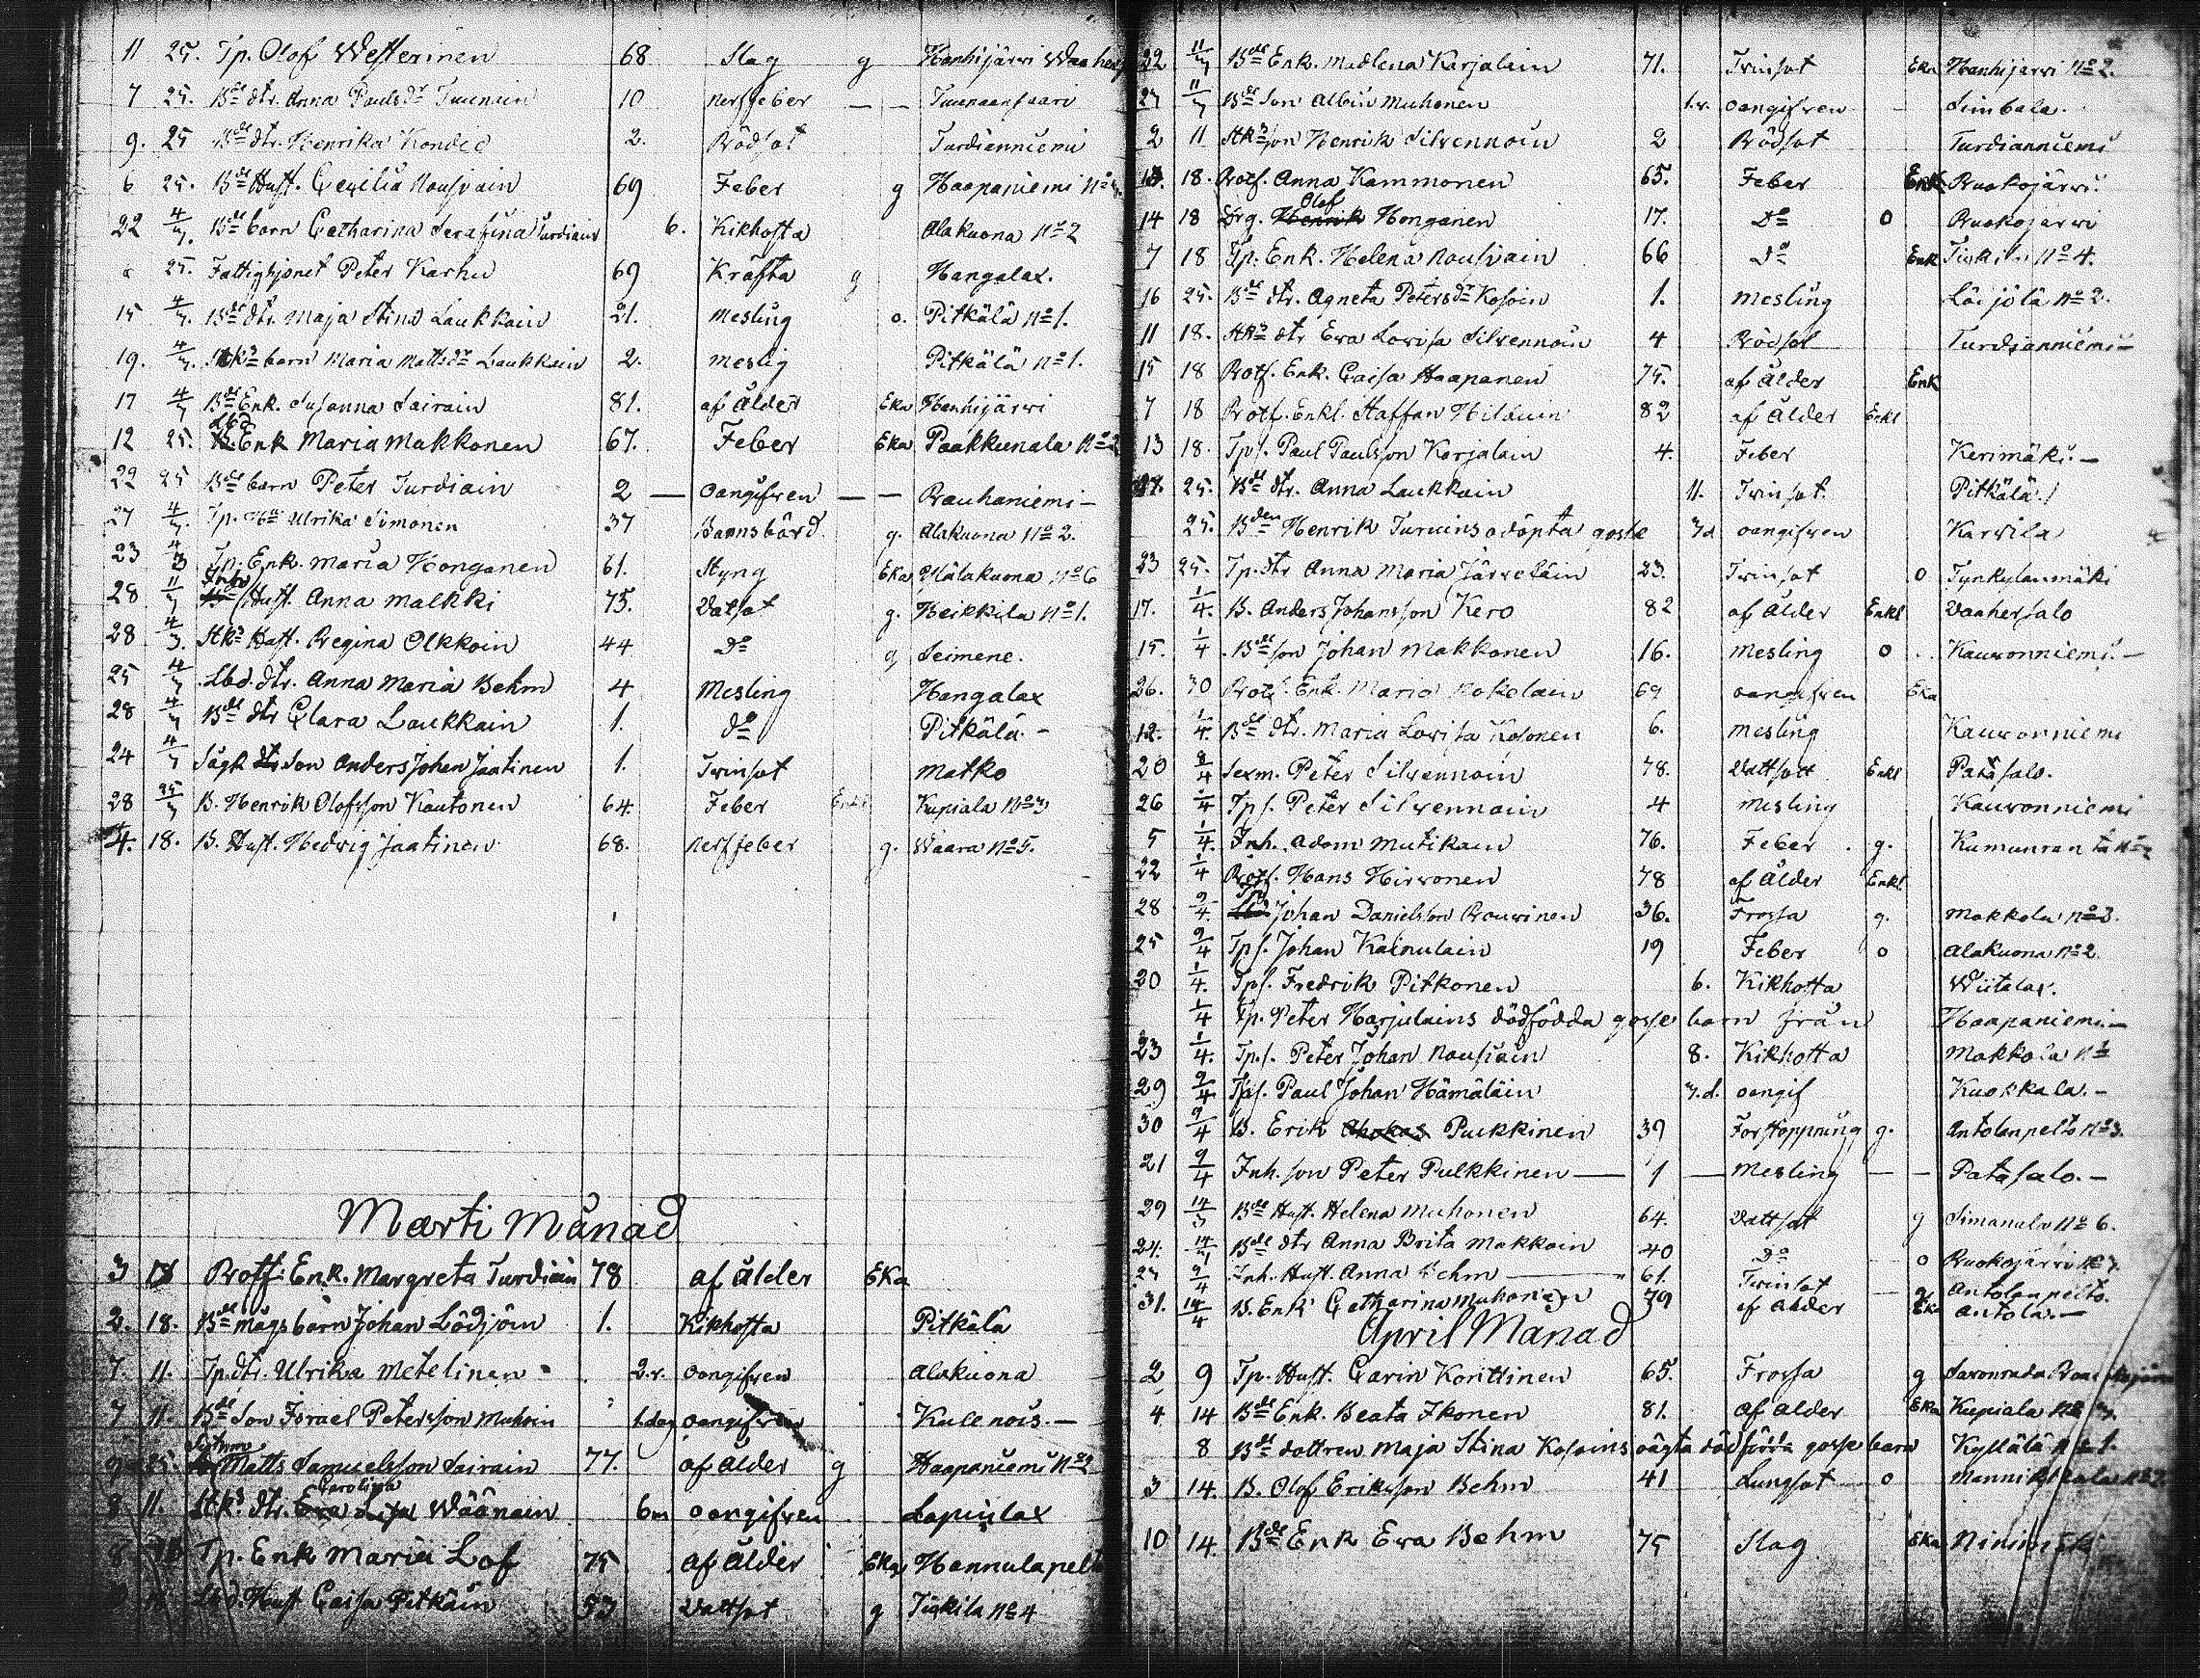 11 25. Tp. Olof Westerinen 68 Slag g Hanhijärvi
7 25. Bde dtr. Anna Paulsdr Tuunain 10 Nerffeber — — Tuunaansaari
9. 25 Bde dtr. Henrika 2. Rödsot Turdianniemi
6 25. Bde Hust. Cecilia Nousiain 69 Feber g Haapaniemi
22 4/3. Bde barn Catharina Serafina Turdiain 6. Kikhosta Alakuona No 2
25. Fattighjonet Peter Karhu 69 Kräfta g Hangalax.
15 4/3. Bde dtr. Maja Stina Laukkain 21. Mesling o. Pitkälä No 1.
19. 4/3. Stks barn Maria Mattsdr Laukkain 2. Meslig Pitkälä No 1.
17 4/3 Bde Enk. Susanna Sairain 81. af Ålder Eka Hanhijärvi
12 25. Lbd Enk Maria Makkonen 67. Feber Eka Paakkunala No 2
22 25 Bde barn Peter Turdiain 2 — Oangifven — — Rauhaniemi —
27 4/3. Tp. Hu Ulrika Simonen 37 Barnsbörd g. Alakuona No 2.
23 4/3 Tp. Enk. Maria Honganen 61. Styng Eka Ylälakuona No 6
28 11/3 Inh. Hust. Anna Malkki 75. Vatsot g. Beikkila No 1.
28 4/3. Stks Hust. Regina Olkkoin 44 Do g Seimene.
25 4/3 Lbd. dtr. Anna Maria Behm 4 Mesling Hangalax
28 4/3 Bde dtr Clara Laukkain 1. do Pitkälä. -
24 4/3 Sågk Son Anders Johan Jaatinen 1. Tvinsot Matko
28 25/3 B. Henrik Olofsson Kautonen 64. Feber Enkl Kupiala No 3
4. 18. B. Hust. Hedvig Jaatinen 68. Nerffeber g. Waara No 5.
Marti Månad
3 Rotf. Enk. Margreta Turdiain 78 af ålder Eka
2. 18. Bde mågs barn Johan Lödjöin 1. Kikhosta Pitkälä
7. 11. Tp. dtr. Ulrika Metelinen 2.v. oangifven Alakuona
7 11. Bde Son Israel Petersson Muhoin 1. dag oangifven Kulenois. —
25. Matts Samuelsson Sairain 77. af ålder g Haapaniemi No 2
8 11. Stks dtr. Eva Lisa Carolina Wäänain 6m oangifven Lapuilax
8 Tp. Enk Maria Lof 75 af ålder Eka Hannulapelt
Lbd. Hust Caisa Pitkäin 53 Vattsot g Tiykila No 4
22 11/3 Bde Enk. Madlena Karjalain 71. Tvinsot Eka Hanhijärvi No 2.
27 11/3 Bde Son Albin Muhonen 1.v. oangifven Simbala.
2 11 Stks son Henrik Silvennoin 2 Rödsot Turdianniemi
18. Rotf. Anna Kammonen 65. Feber Enk Ruokojärvi
14 18 Drg. Henrik Olof Honganen 17. Do o Ruokojärvi
7 18 Tp. Enk. Helena Nousiain 66 Do Enk No 4.
16 25. Bde dtr. Agneta Petersdr Kosoin 1. Mesling Läijölä No 2.
11 18. Stks dtr Eva Lovisa Silvennoin 4 Rödsot Turdianniemi —
15 18 Rotf. Enk. Caisa Haapanen 75. af ålder Enk
7 18 Rotf. Enkl. Staffan Hilduin 82 af ålder Enkl
13 18. Tps. Paul Paulsson Karjalain 4. Feber Kerimäki. —
25. Bde dtr. Anna Laukkain 11. Tvinsot Pitkälä.
25. Bden Henrik Turuins adöpta gosse 3d oangifven Karvila
23 25. Tp. dtr Anna Maria Järveläin 23. Tvinsot o Tynkylanmäki
17. 1/4. B. Anders Johansson Kero 82 af ålder Enkl Vaahersalo
15. 1/4. Bde son Johan Makkonen 16. Mesling o Kauvonniemi. —
26. 30 Rotf. Enk. Maria Kokolain 69 oangifven Eka
12. 1/4. Bde dtr. Maria Lovisa Kosonen 6. Mesling Kauvonniemi
20 Sexm. Peter Silvennoin 78. Vattsott Enkl Patasalo.
26 Tps. Peter Silvennoin 4 Mesling Kauvonniemi
5 1/4. Inh. Adam Mutikain 76. Feber g. Kumunranta
22 Rotf. Hans Hirvonen 78 af ålder Enkl
28 9/4. Johan Danielsson Rouvinen 36. Frossa g. Makkola No 3.
25 9/4 Tps. Johan Kainulain 19 Feber o Alakuona No 2
20 1/4. Tps. Fredrik Pitkonen 6. Kikhosta Wiitalax.
1/4 Tp. Peter Harjulains dödfödda gosse barn från Haapaniemi —
23 1/4. Tps. Peter Johan Nousiain 8. Kikhosta Makkola
29 9/4 Tps. Paul Johan Hämäläin 3.d. oangif Kuokkala. —
30 9/4 B. Erik Puikkinen 39 Förstoppning g. Antolanpelto No 3.
21 9/4 Inh. son Peter Pulkkinen — 1 — Mesling — — Patasalo. —
29 14/3 Bde Hust. Helena Muhonen 64. Vattsot g Simanula No 6.
24. 14/4 Bde dtr Anna Brita Makkoin 40 Do o Ruokojärvi
27 9/4 Inh. Hust. Anna Behm — 61. Tvinsot — g Antolanpelto.
31. 14/4 B. Enk Catharina Muhonen 79 af ålder Eka Antola. —
April Månad
2 9 Tp. Hust. Carin Konttinen 65. Frossa g
4 14 Bde Enk. Beata Ikonen 81. af ålder Eka Kupiala
8 Bde dottren Maja Stina Kosoins oägta dödfödda gosse barn Kyllälä No 1.
3 14. B. Olof Eriksson Behm 41 Lungsot o
10 14. Bde Enk Eva Behm 75 Slag Eka